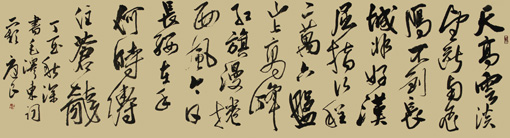 天高雲淡
望斷南飛
雁不到長
城非好漢
屈指行程
二萬六盤
山上高峰
紅旗漫卷
西風今日
長纓在手
何時縛
住蒼龍
丁亥秋深
書毛澤東詞